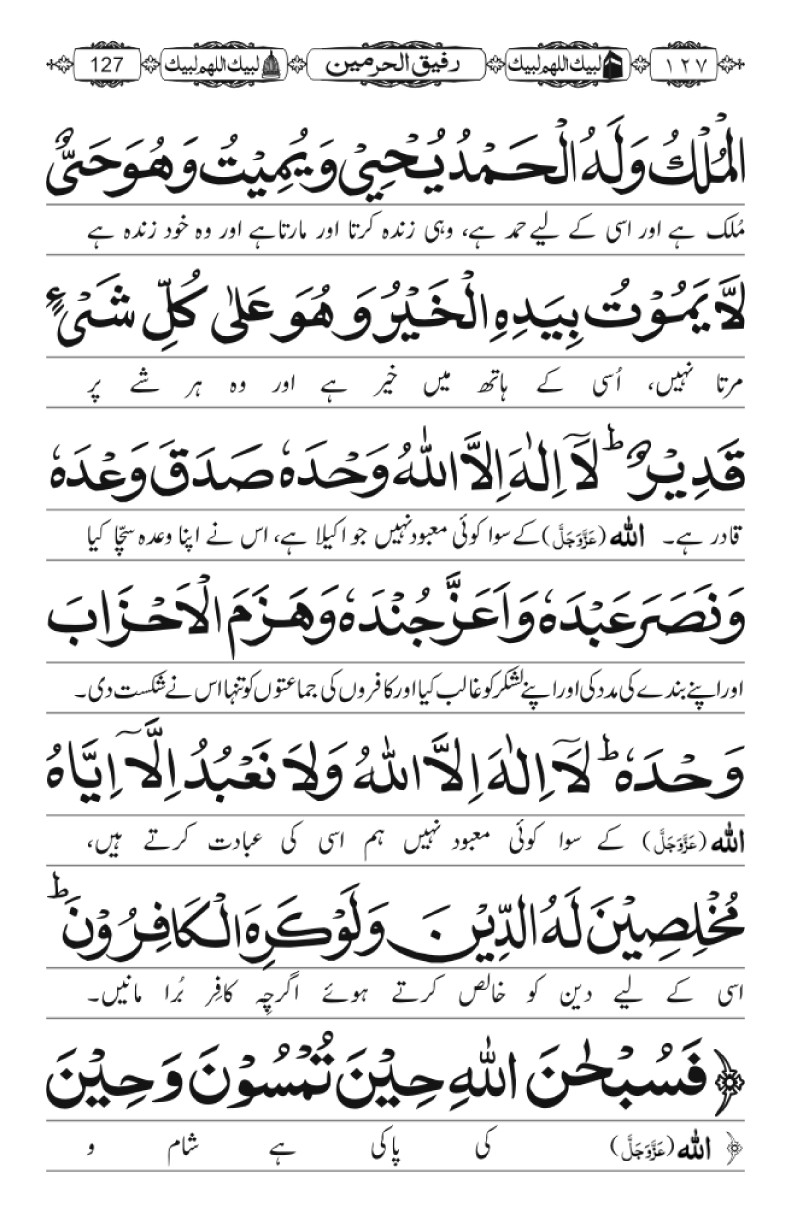 ١٢٧ لبیك اللهم لبیك رفیق الحرمین لبیك اللهم لبیك 127
الْمُلْكُ وَلَهُ الْحَمْدُ یُحْیِیْ وَیُمِیْتُ وَهُوَ حَیٌّ
مُلک ہے اور اسی کے لیے حمد ہے، وہی زندہ کرتا اور مارتاہے اور وہ خود زندہ ہے
لَّا یَمُوْتُ بِیَدِهِ الْخَیْرُ وَ هُوَ عَلٰی كُلِّ شَیْءٍ
مرتا نہیں، اُسی کے ہاتھ میں خیر ہے اور وہ ہر شے پر
قَدِیْرٌ ؕ لَاۤ اِلٰهَ اِلَّا اللّٰهُ وَحْدَهٗ صَدَقَ وَعْدَهٗ
قادر ہے۔ اللّٰه (عَزَّوَجَلَّ) کے سوا کوئی معبود نہیں جو اکیلا ہے، اس نے اپنا وعدہ سچّا کیا
وَنَصَرَ عَبْدَهٗ وَاَعَزَّ جُنْدَهٗ وَهَزَمَ الْاَحْزَابَ
اور اپنے بندے کی مدد کی اور اپنے لشکر کو غالب کیا اور کافروں کی جماعتوں کو تنہا اس نے شکست دی۔
وَحْدَهٗ ؕ لَاۤ اِلٰهَ اِلَّا اللّٰهُ وَلَا نَعْبُدُ اِلَّاۤ اِیَّاهُ
اللّٰه (عَزَّوَجَلَّ) کے سوا کوئی معبود نہیں ہم اسی کی عبادت کرتے ہیں،
مُخْلِصِیْنَ لَهُ الدِّیْنَ وَلَوْ كَرِهَ الْكَافِرُوْنَ ؕ
اسی کے لیے دین کو خالص کرتے ہوئے اگرچِہ کافِر بُرا مانیں۔
﴿ فَسُبْحٰنَ اللّٰهِ حِیْنَ تُمْسُوْنَ وَ حِیْنَ
﴿ اللّٰه (عَزَّوَجَلَّ) کی پاکی ہے شام و